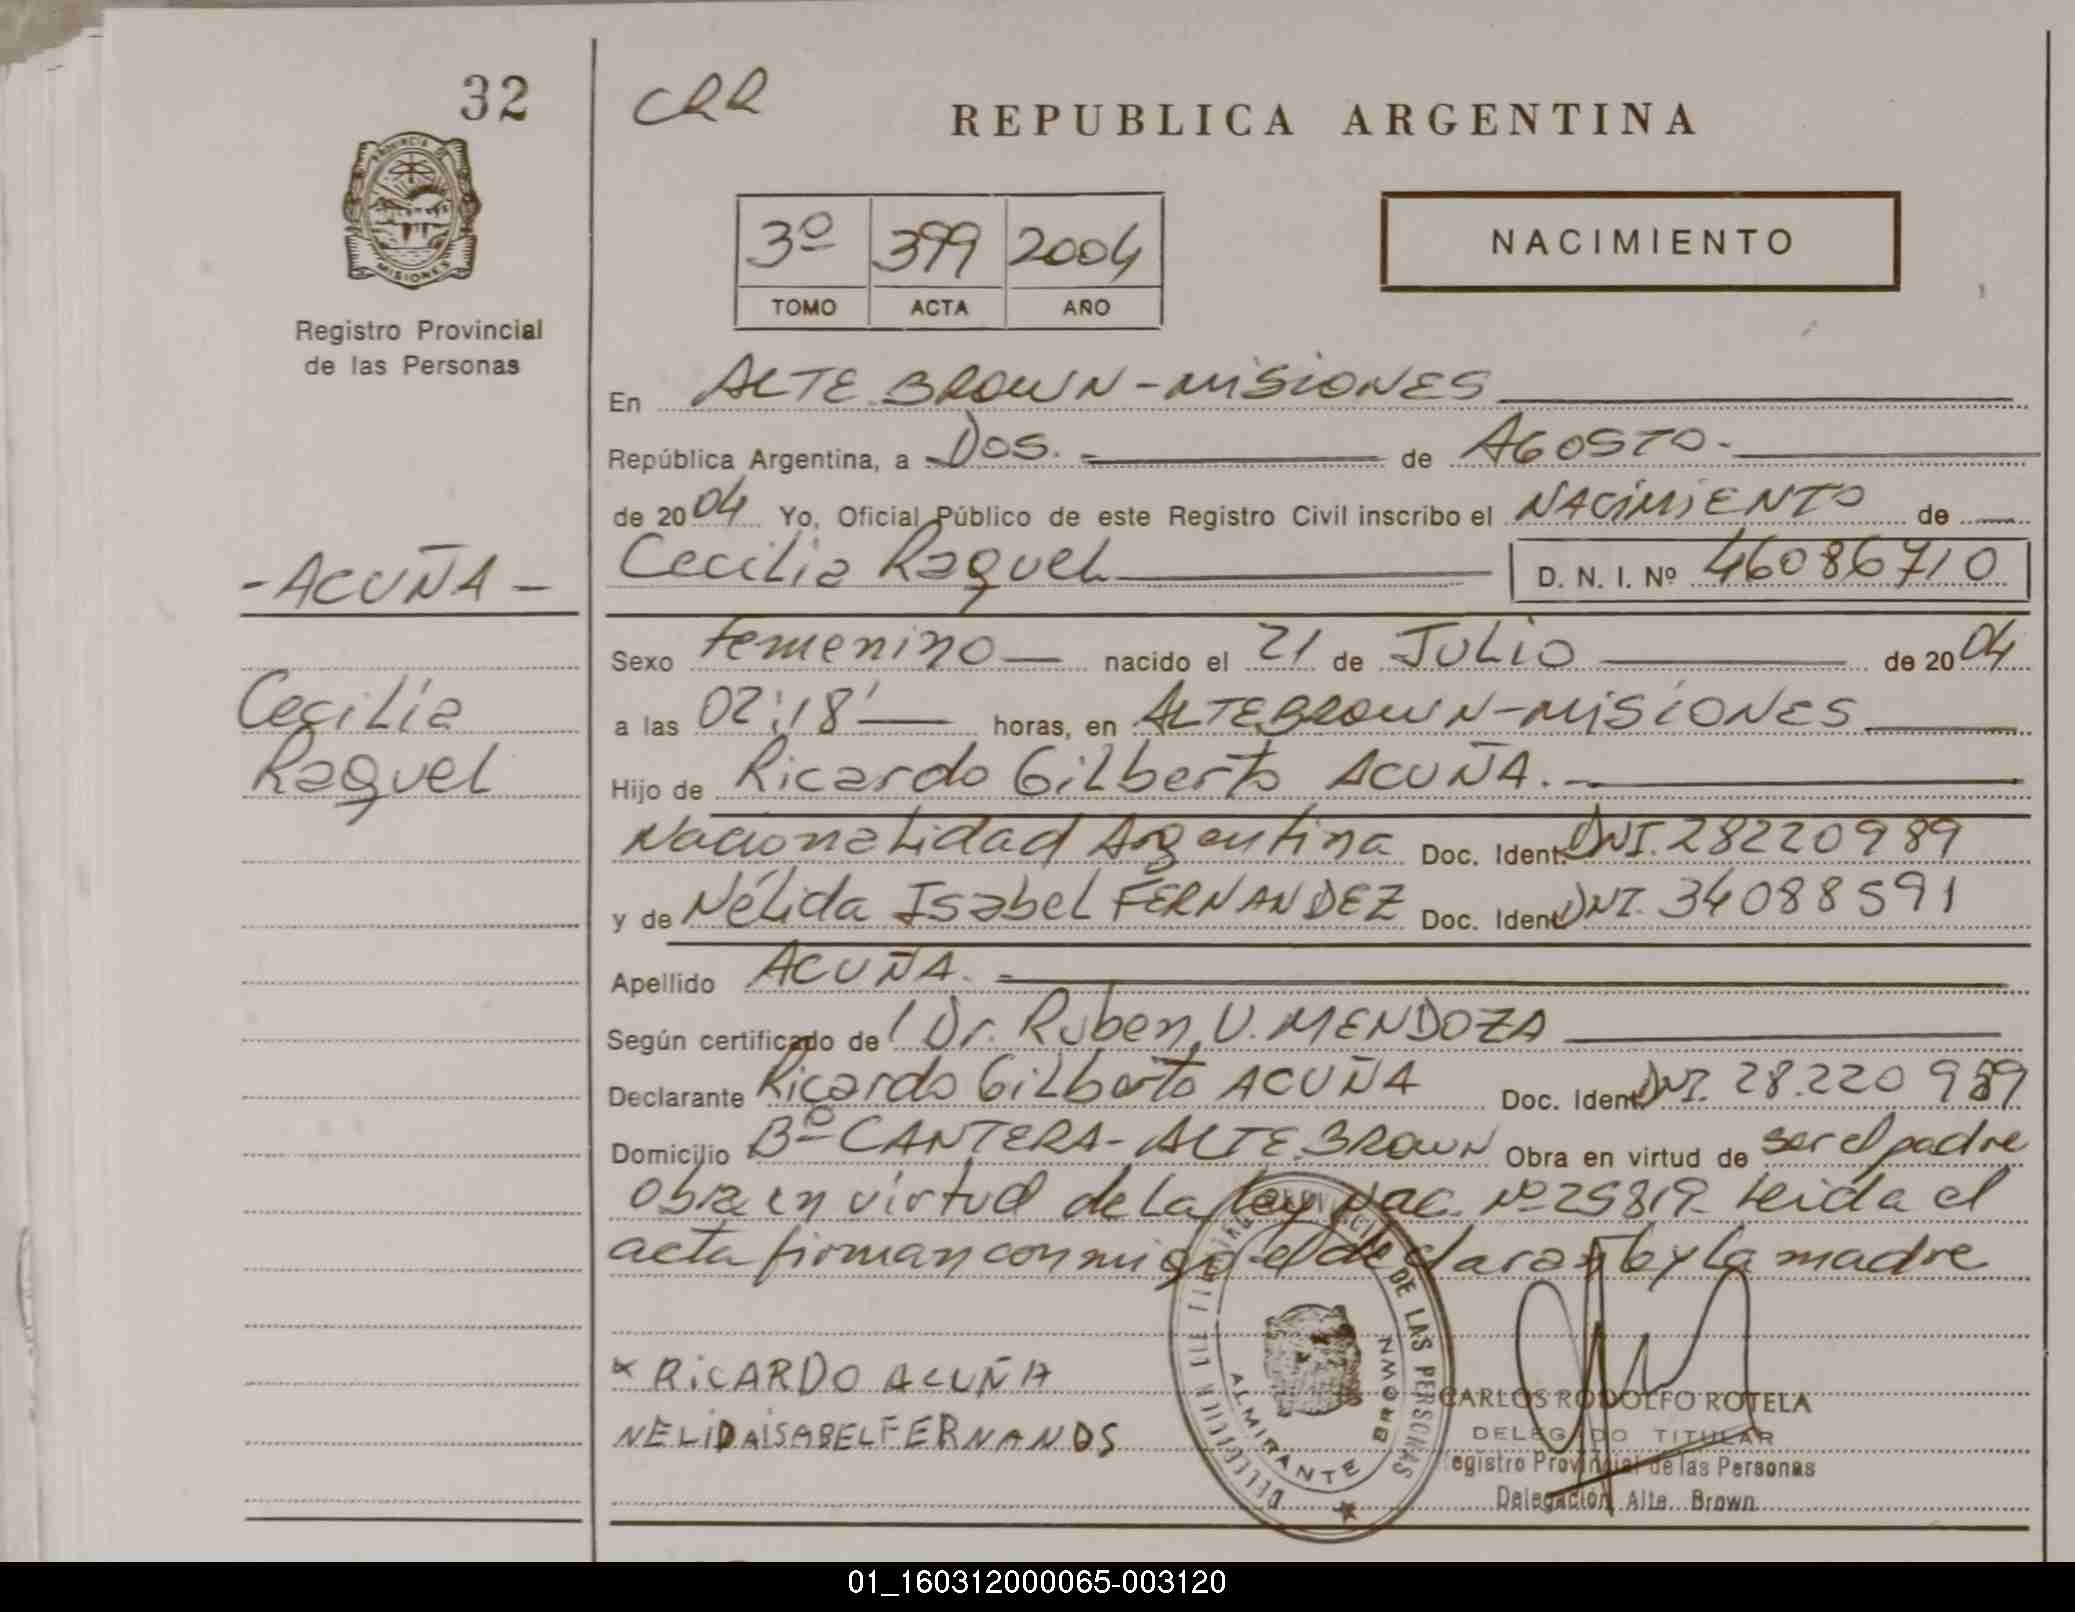 32
CRR
REPUBLICA ARGENTINA
PROVINCIA DE
MISIONES
Registro Provincial
de las Personas
3º 399 2004
TOMO ACTA AÑO
NACIMIENTO
En ALTE BROWN-MISIONES
República Argentina, a DOS. de AGOSTO.
de 2004 Yo, Oficial Público de este Registro Civil inscribo el NACIMIENTO de
-ACUÑA-
Cecilia Raquel D. N. I. Nº 46086710
Sexo Femenino nacido el 21 de JULIO de 2004
Cecilia
a las 02:18' horas, en ALTE BROWN-MISIONES
Raquel
Hijo de Ricardo Gilberto ACUÑA.
Nacionalidad Argentina Doc. Ident. DNI. 28220989
y de Nélida Isabel FERNANDEZ Doc. Ident. DNI. 34088591
Apellido ACUÑA.
Según certificado de Dr. Ruben U. MENDOZA
Declarante Ricardo Gilberto ACUÑA Doc. Ident. DNI. 28.220 989
Domicilio Bº CANTERA- ALTE BROWN Obra en virtud de ser el padre
Obra en virtud de la ley Nac. Nº 25819 Leida el
acta firman conmigo el declarante y la madre
x RiCARDO ACUÑA
NELiDAiSABELFERNANDS
DE LAS PERSONAS
ALMIRANTE BROWN
CARLOS RODOLFO ROTELA
DELEGADO TITULAR
Registro Provincial de las Personas
Delegación Alte. Brown
01_160312000065-003120